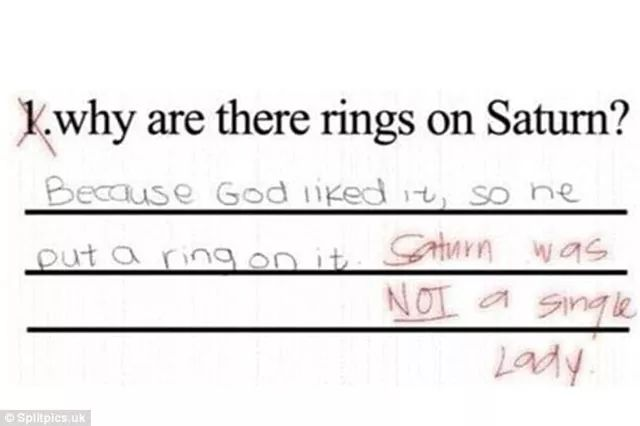 1.why are there rings on Saturn?
Because God liked it, so he
put a ring on it. Saturn was
NOT a single
Lady.
© Splitpics.uk